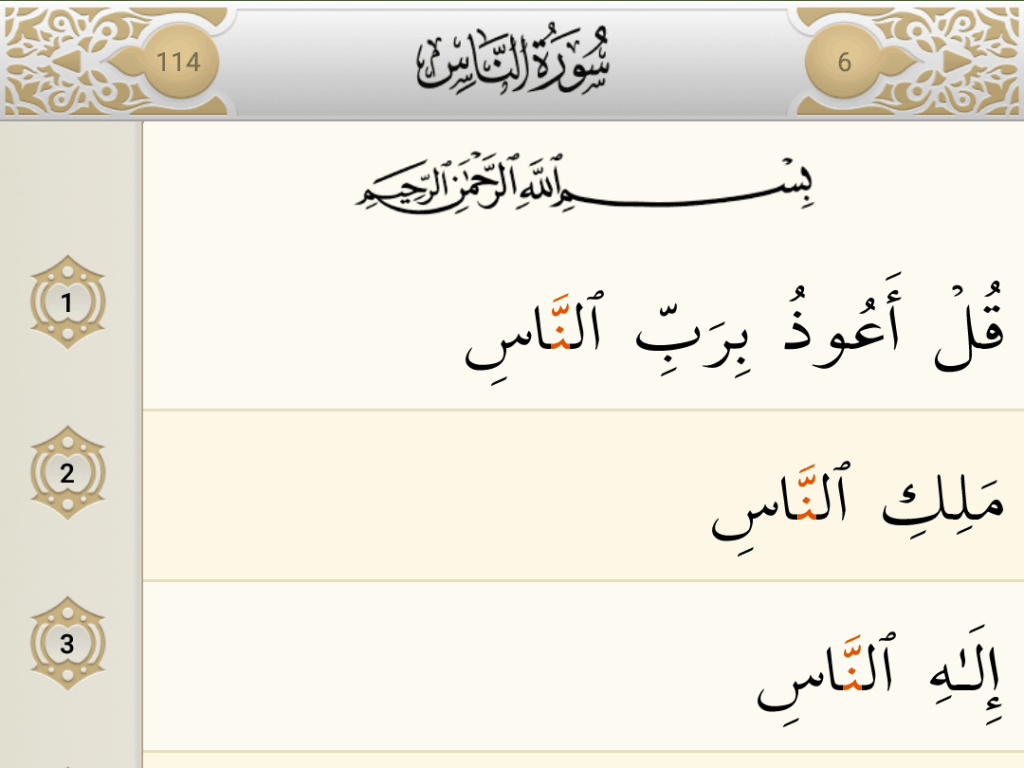 114 سُورَةُ النَّاسِ 6
بِسْمِ ٱللَّهِ ٱلرَّحْمَٰنِ ٱلرَّحِيمِ
1 قُلْ أَعُوذُ بِرَبِّ ٱلنَّاسِ
2 مَلِكِ ٱلنَّاسِ
3 إِلَـٰهِ ٱلنَّاسِ